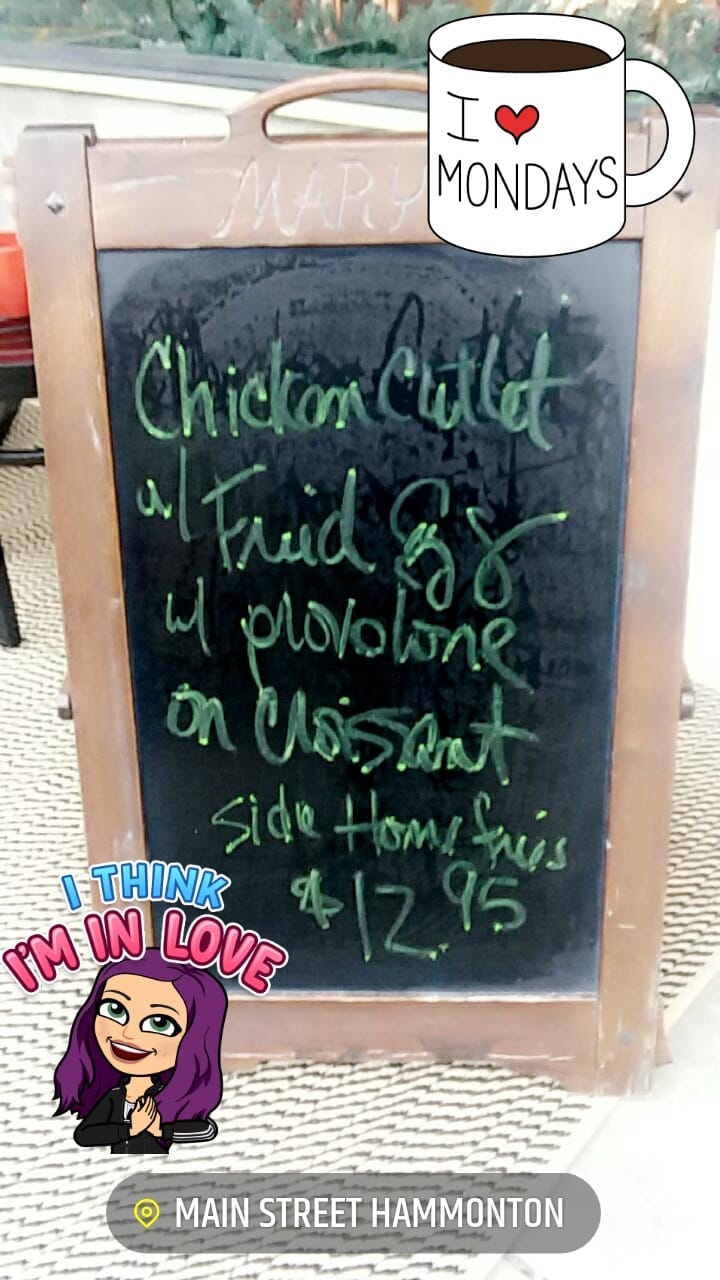 I ❤ MONDAYS
MARY
Chicken Cutlet
w/ Fried Egg
w/ provolone
on Croissant
side Home fries
$12.95
I THINK
I'M IN LOVE
MAIN STREET HAMMONTON